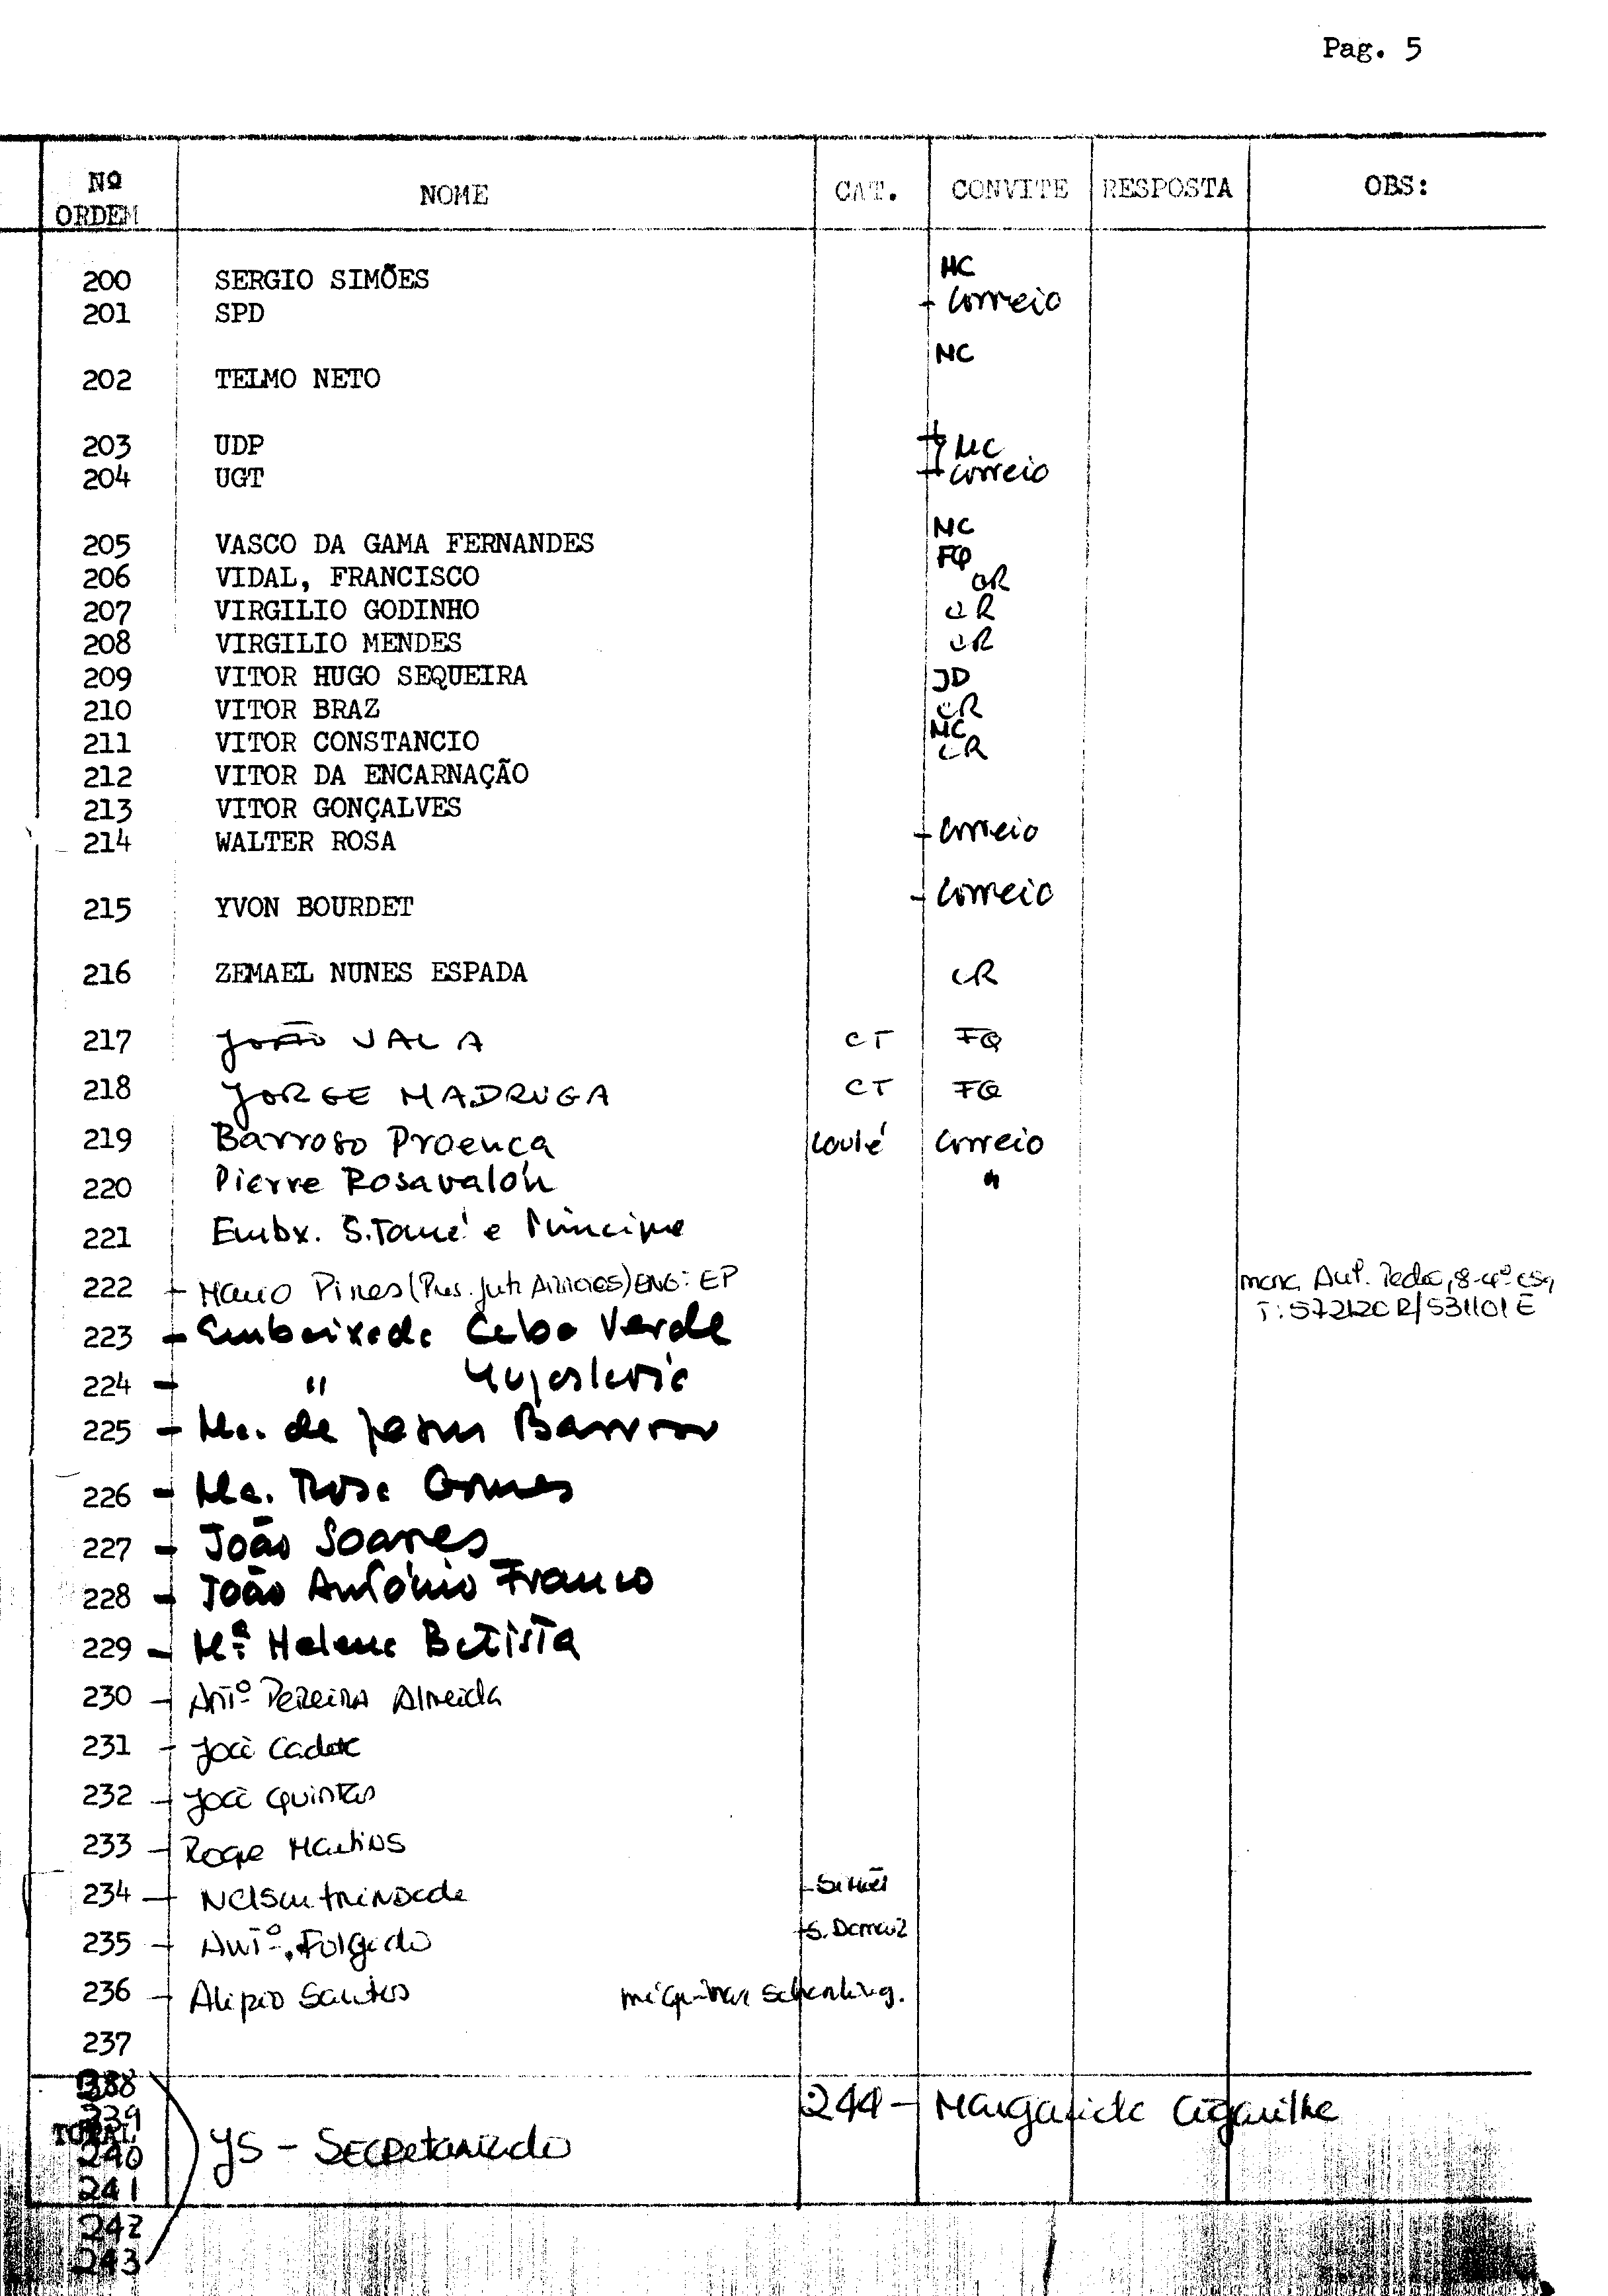 Pag. 5
Nº ORDEM NOME CAT. CONVITE RESPOSTA OBS:
200 SERGIO SIMÕES MC
201 SPD - Correio
202 TELMO NETO MC
203 UDP MC
204 UGT - Correio
205 VASCO DA GAMA FERNANDES MC
206 VIDAL, FRANCISCO FQ
207 VIRGILIO GODINHO CR
208 VIRGILIO MENDES CR
209 VITOR HUGO SEQUEIRA JD
210 VITOR BRAZ CR
211 VITOR CONSTANCIO MC
212 VITOR DA ENCARNAÇÃO CR
213 VITOR GONÇALVES
214 WALTER ROSA - Correio
215 YVON BOURDET - Correio
216 ZEMAEL NUNES ESPADA CR
217 JOÃO VALA CT FQ
218 JORGE MADRUGA CT FQ
219 Barroso Proença Loulé Correio
220 Pierre Rosavalon "
221 Embx. S. Tomé e Príncipe
222 - Mario Pires ENG: EP
T: 572120 R/531101 E
223 - Embaixada Cabo Verde
224 - " Yugoslavia
225 - Ma. de Jesus Barroso
226 - Ma. Rosa Gomes
227 - João Soares
228 - João António Franco
229 - Mª Helena Batista
230 - Antº Pereira Almeida
231 - José Cadete
232 - José Quintas
233 - Roque Martins
234 - Nelson Trindade
235 - Antº. Folgado
236 - Alipio Santos
237
238
239
TOTAL
240
241
242
243
JS - Secretariado
244 - Margarida